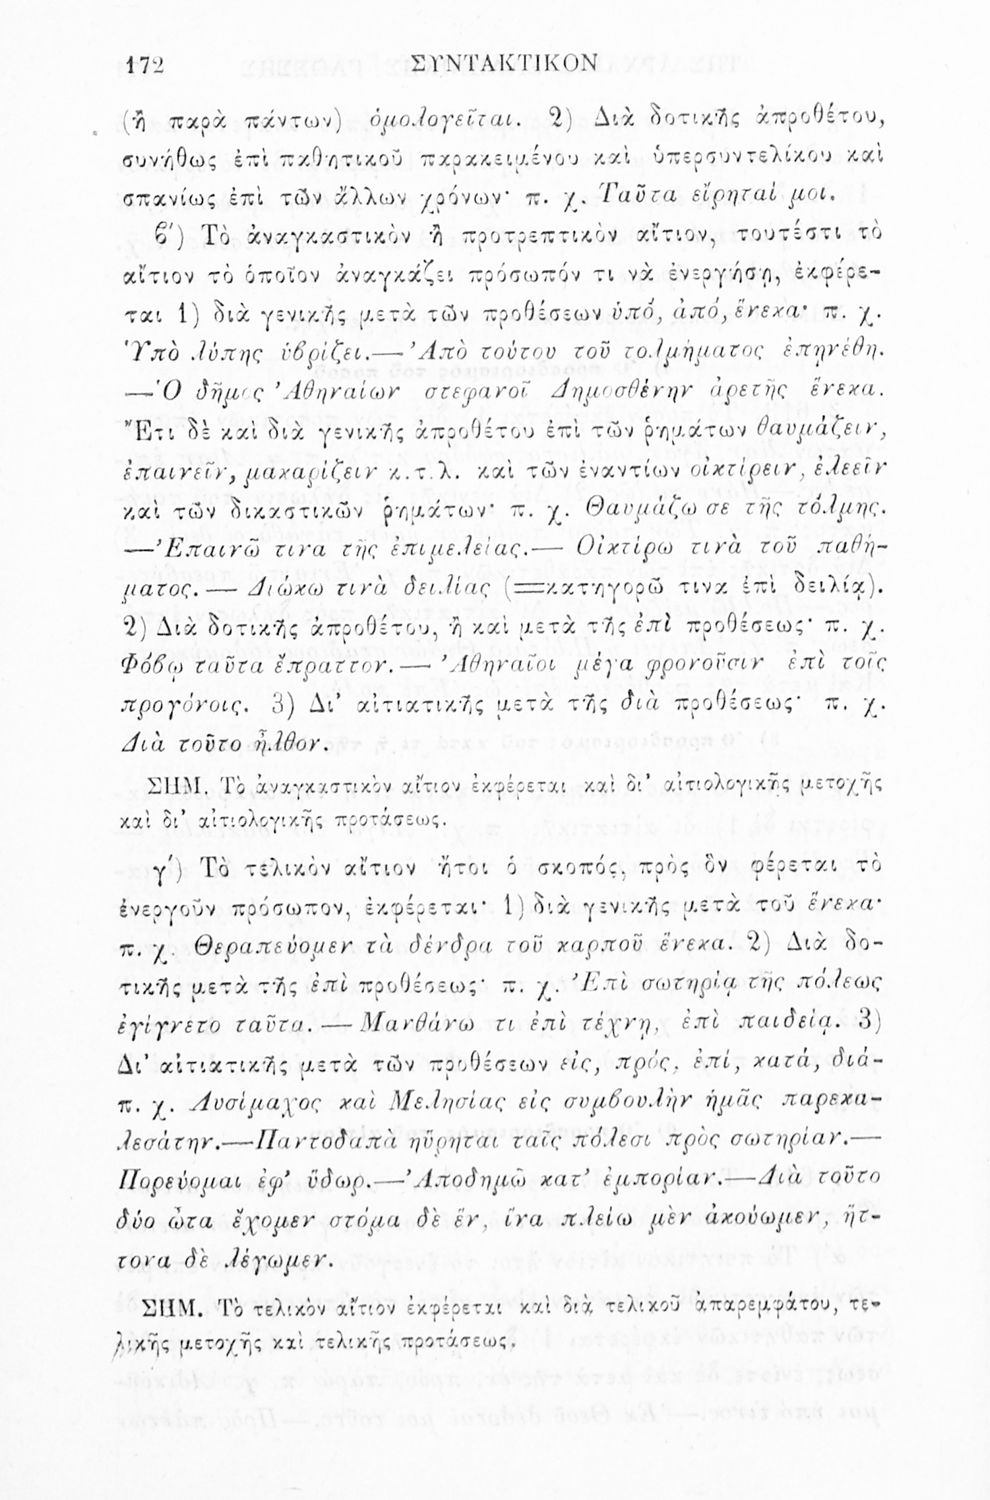 172 ΣΥΝΤΑΚΤΙΚΟΝ
(ἢ παρὰ πάντων) ὁμολογεῖται. 2) Διὰ δοτικῆς ἀπροθέτου,
συνήθως ἐπὶ παθητικοῦ παρακειμένου καὶ ὑπερσυντελίκου καὶ
σπανίως ἐπὶ τῶν ἄλλων χρόνων· π. χ. Ταῦτα εἴρηταί μοι.
β΄) Τὸ ἀναγκαστικὸν ἢ προτρεπτικὸν αἴτιον, τουτέστι τὸ
αἴτιον τὸ ὁποῖον ἀναγκάζει πρόσωπόν τι νὰ ἐνεργήσῃ, ἐκφέρε-
ται 1) διὰ γενικῆς μετὰ τῶν προθέσεων ὑπό, ἀπό, ἕνεκα· π. χ.
Ὑπὸ λύπης ὑβρίζει.— Ἀπὸ τούτου τοῦ τολμήματος ἐπῃνέθη.
—Ὁ δῆμος Ἀθηναίων στεφανοῖ Δημοσθένην ἀρετῆς ἕνεκα.
Ἔτι δὲ καὶ διὰ γενικῆς ἀπροθέτου ἐπὶ τῶν ῥημάτων θαυμάζειν,
ἐπαινεῖν, μακαρίζειν κ.τ.λ. καὶ τῶν ἐναντίων οἰκτίρειν, ἐλεεῖν
καὶ τῶν δικαστικῶν ῥημάτων· π. χ. Θαυμάζω σε τῆς τόλμης.
—Ἐπαινῶ τινα τῆς ἐπιμελείας.— Οἰκτίρω τινὰ τοῦ παθή-
ματος.— Διώκω τινὰ δειλίας (=κατηγορῶ τινα ἐπὶ δειλίᾳ).
2) Διὰ δοτικῆς ἀπροθέτου, ἢ καὶ μετὰ τῆς ἐπὶ προθέσεως· π. χ.
Φόβῳ ταῦτα ἔπραττον.— Ἀθηναῖοι μέγα φρονοῦσιν ἐπὶ τοῖς
προγόνοις. 3) Δι' αἰτιατικῆς μετὰ τῆς διὰ προθέσεως· π. χ.
Διὰ τοῦτο ἦλθον.
ΣΗΜ. Τὸ ἀναγκαστικὸν αἴτιον ἐκφέρεται καὶ δι' αἰτιολογικῆς μετοχῆς
καὶ δι' αἰτιολογικῆς προτάσεως.
γ΄) Τὸ τελικὸν αἴτιον ἤτοι ὁ σκοπός, πρὸς ὃν φέρεται τὸ
ἐνεργοῦν πρόσωπον, ἐκφέρεται· 1) διὰ γενικῆς μετὰ τοῦ ἕνεκα·
π. χ. Θεραπεύομεν τὰ δένδρα τοῦ καρποῦ ἕνεκα. 2) Διὰ δο-
τικῆς μετὰ τῆς ἐπὶ προθέσεως· π. χ. Ἐπὶ σωτηρίᾳ τῆς πόλεως
ἐγίγνετο ταῦτα.— Μανθάνω τι ἐπὶ τέχνῃ, ἐπὶ παιδείᾳ. 3)
Δι' αἰτιατικῆς μετὰ τῶν προθέσεων εἰς, πρός, ἐπί, κατά, διά-
π. χ. Λυσίμαχος καὶ Μελησίας εἰς συμβουλὴν ἡμᾶς παρεκα-
λεσάτην.—Παντοδαπὰ ηὕρηται ταῖς πόλεσι πρὸς σωτηρίαν.—
Πορεύομαι ἐφ' ὕδωρ.—Ἀποδημῶ κατ' ἐμπορίαν.—Διὰ τοῦτο
δύο ὦτα ἔχομεν στόμα δὲ ἕν, ἵνα πλείω μὲν ἀκούωμεν, ἥτ-
τονα δὲ λέγωμεν.
ΣΗΜ. Τὸ τελικὸν αἴτιον ἐκφέρεται καὶ διὰ τελικοῦ ἀπαρεμφάτου, τε-
λικῆς μετοχῆς καὶ τελικῆς προτάσεως.